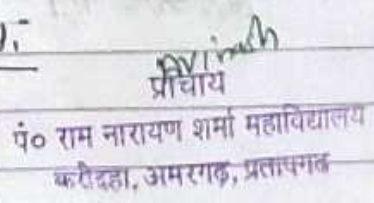 Avinash
प्राचार्य
पं० राम नारायण शर्मा महाविद्यालय
करीदहा, अमरगढ़, प्रतापगढ़